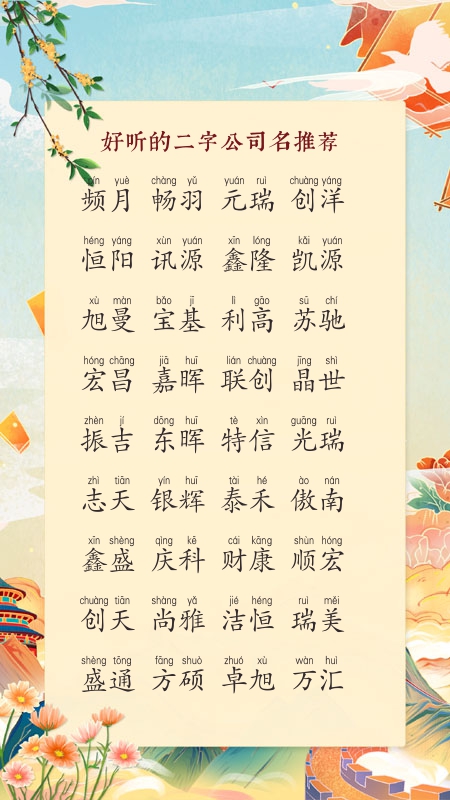 好听的二字公司名推荐
pín yuè chàng yǔ yuán ruì chuàng yáng
频月 畅羽 元瑞 创洋
héng yáng xùn yuán xīn lóng kǎi yuán
恒阳 讯源 鑫隆 凯源
xù màn bǎo jī lì gāo sū chí
旭曼 宝基 利高 苏驰
hóng chāng jiā huī lián chuàng jīng shì
宏昌 嘉晖 联创 晶世
zhèn jí dōng huī tè xìn guāng ruì
振吉 东晖 特信 光瑞
zhì tiān yín huī tài hé ào nán
志天 银辉 泰禾 傲南
xīn shèng qìng kē cái kāng shùn hóng
鑫盛 庆科 财康 顺宏
chuàng tiān shàng yǎ jié héng ruì měi
创天 尚雅 洁恒 瑞美
shèng tōng fāng shuò zhuó xù wàn huì
盛通 方硕 卓旭 万汇